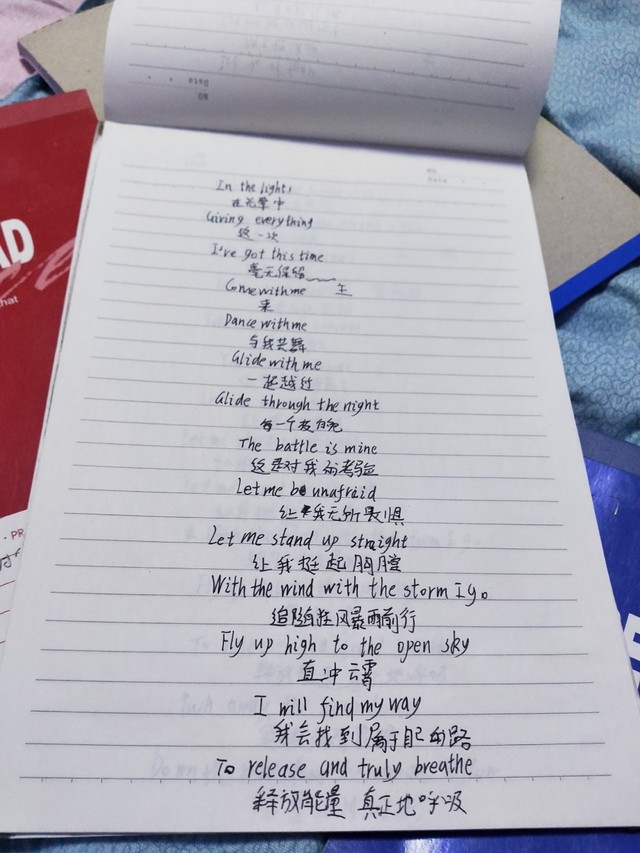 In the light,
在光晕中
Giving everything
这一次
I've got this time
毫无保留
Come with me 生
来
Dance with me
与我共舞
Glide with me
一起越过
Glide through the night
每一个夜晚
The battle is mine
这是对我的考验
Let me be unafraid
让我无所畏惧
Let me stand up straight
让我挺起胸膛
With the wind with the storm I go
追随狂风暴雨前行
Fly up high to the open sky
直冲云霄
I will find my way
我会找到属于自己的路
To release and truly breathe
释放能量 真正地呼吸
AD
hat
PR
NO
Date